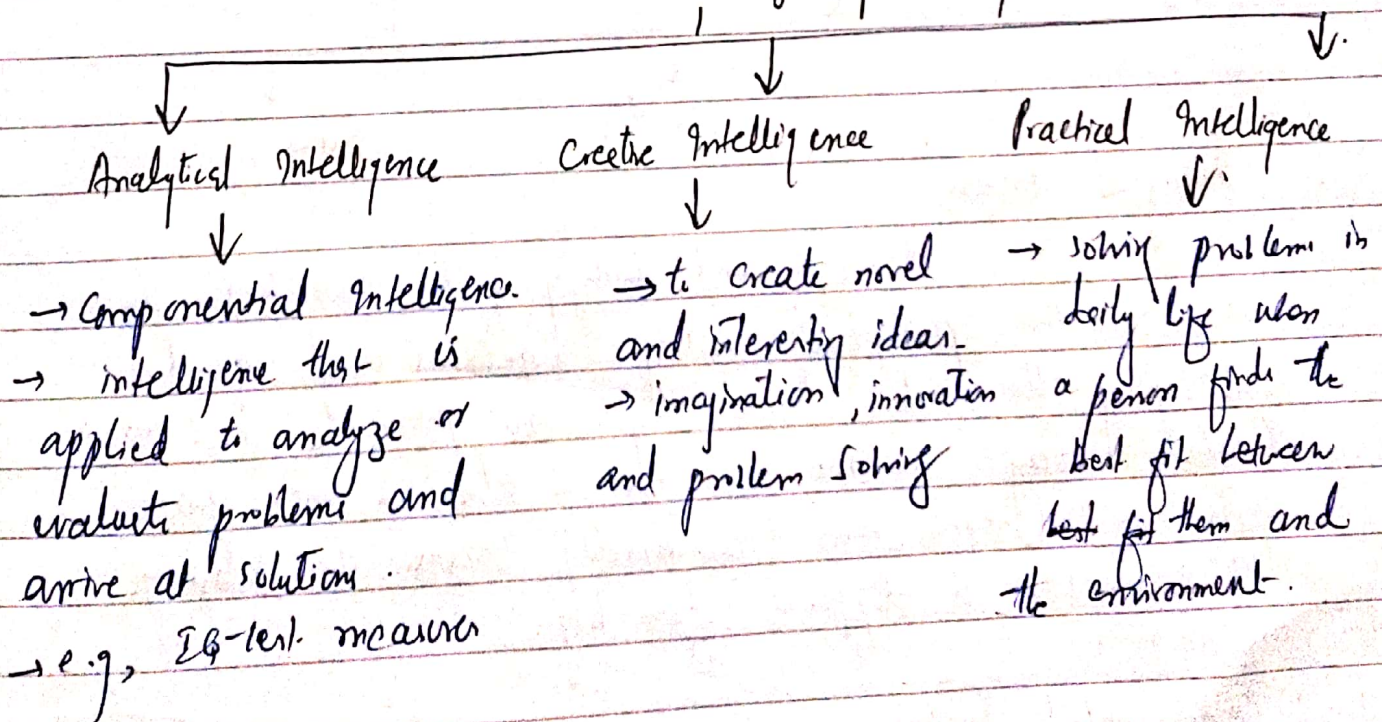 Analytical Intelligence
→ Componential Intelligence.
→ intelligence that is
applied to analyze or
evaluate problems and
arrive at solutions.
→ e.g, IQ-test measures
Creetve Intelligence
→ to create novel
and interesting ideas.
→ imagination, innovation
and problem solving
Practical Intelligence
→ solving problems in
daily life when
a person finds the
best fit between
best fit them and
the environment.